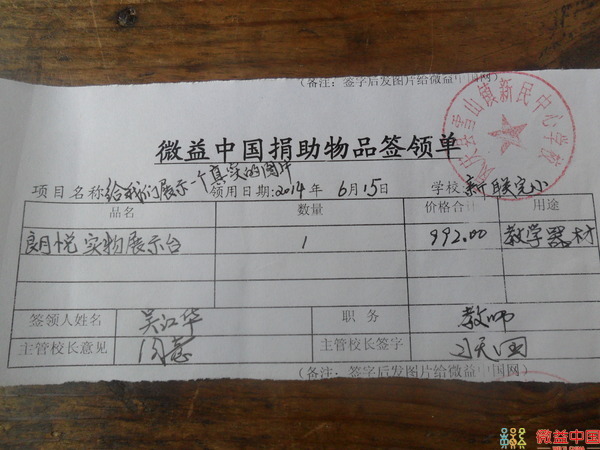 (备注：签字后发图片给微益中国网)
微益中国捐助物品签领单
项目名称 给我们展示一个真实的图片 领用日期:2014年 6月15日 学校 新联完小
品名 数量 价格合计 用途
朗悦实物展示台 1 992.00 教学器材
签领人姓名 吴江华 职 务 教师
主管校长意见 同意 主管校长签字
(备注：签字后发图片给微益中国网)
雪山镇新民中心学校
微益中国